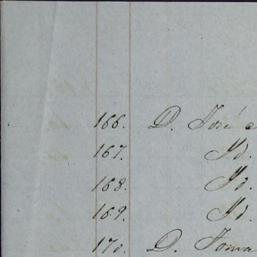 166. D. José
167. Yd.
168. Yd.
169. Yd.
170. D. Toma